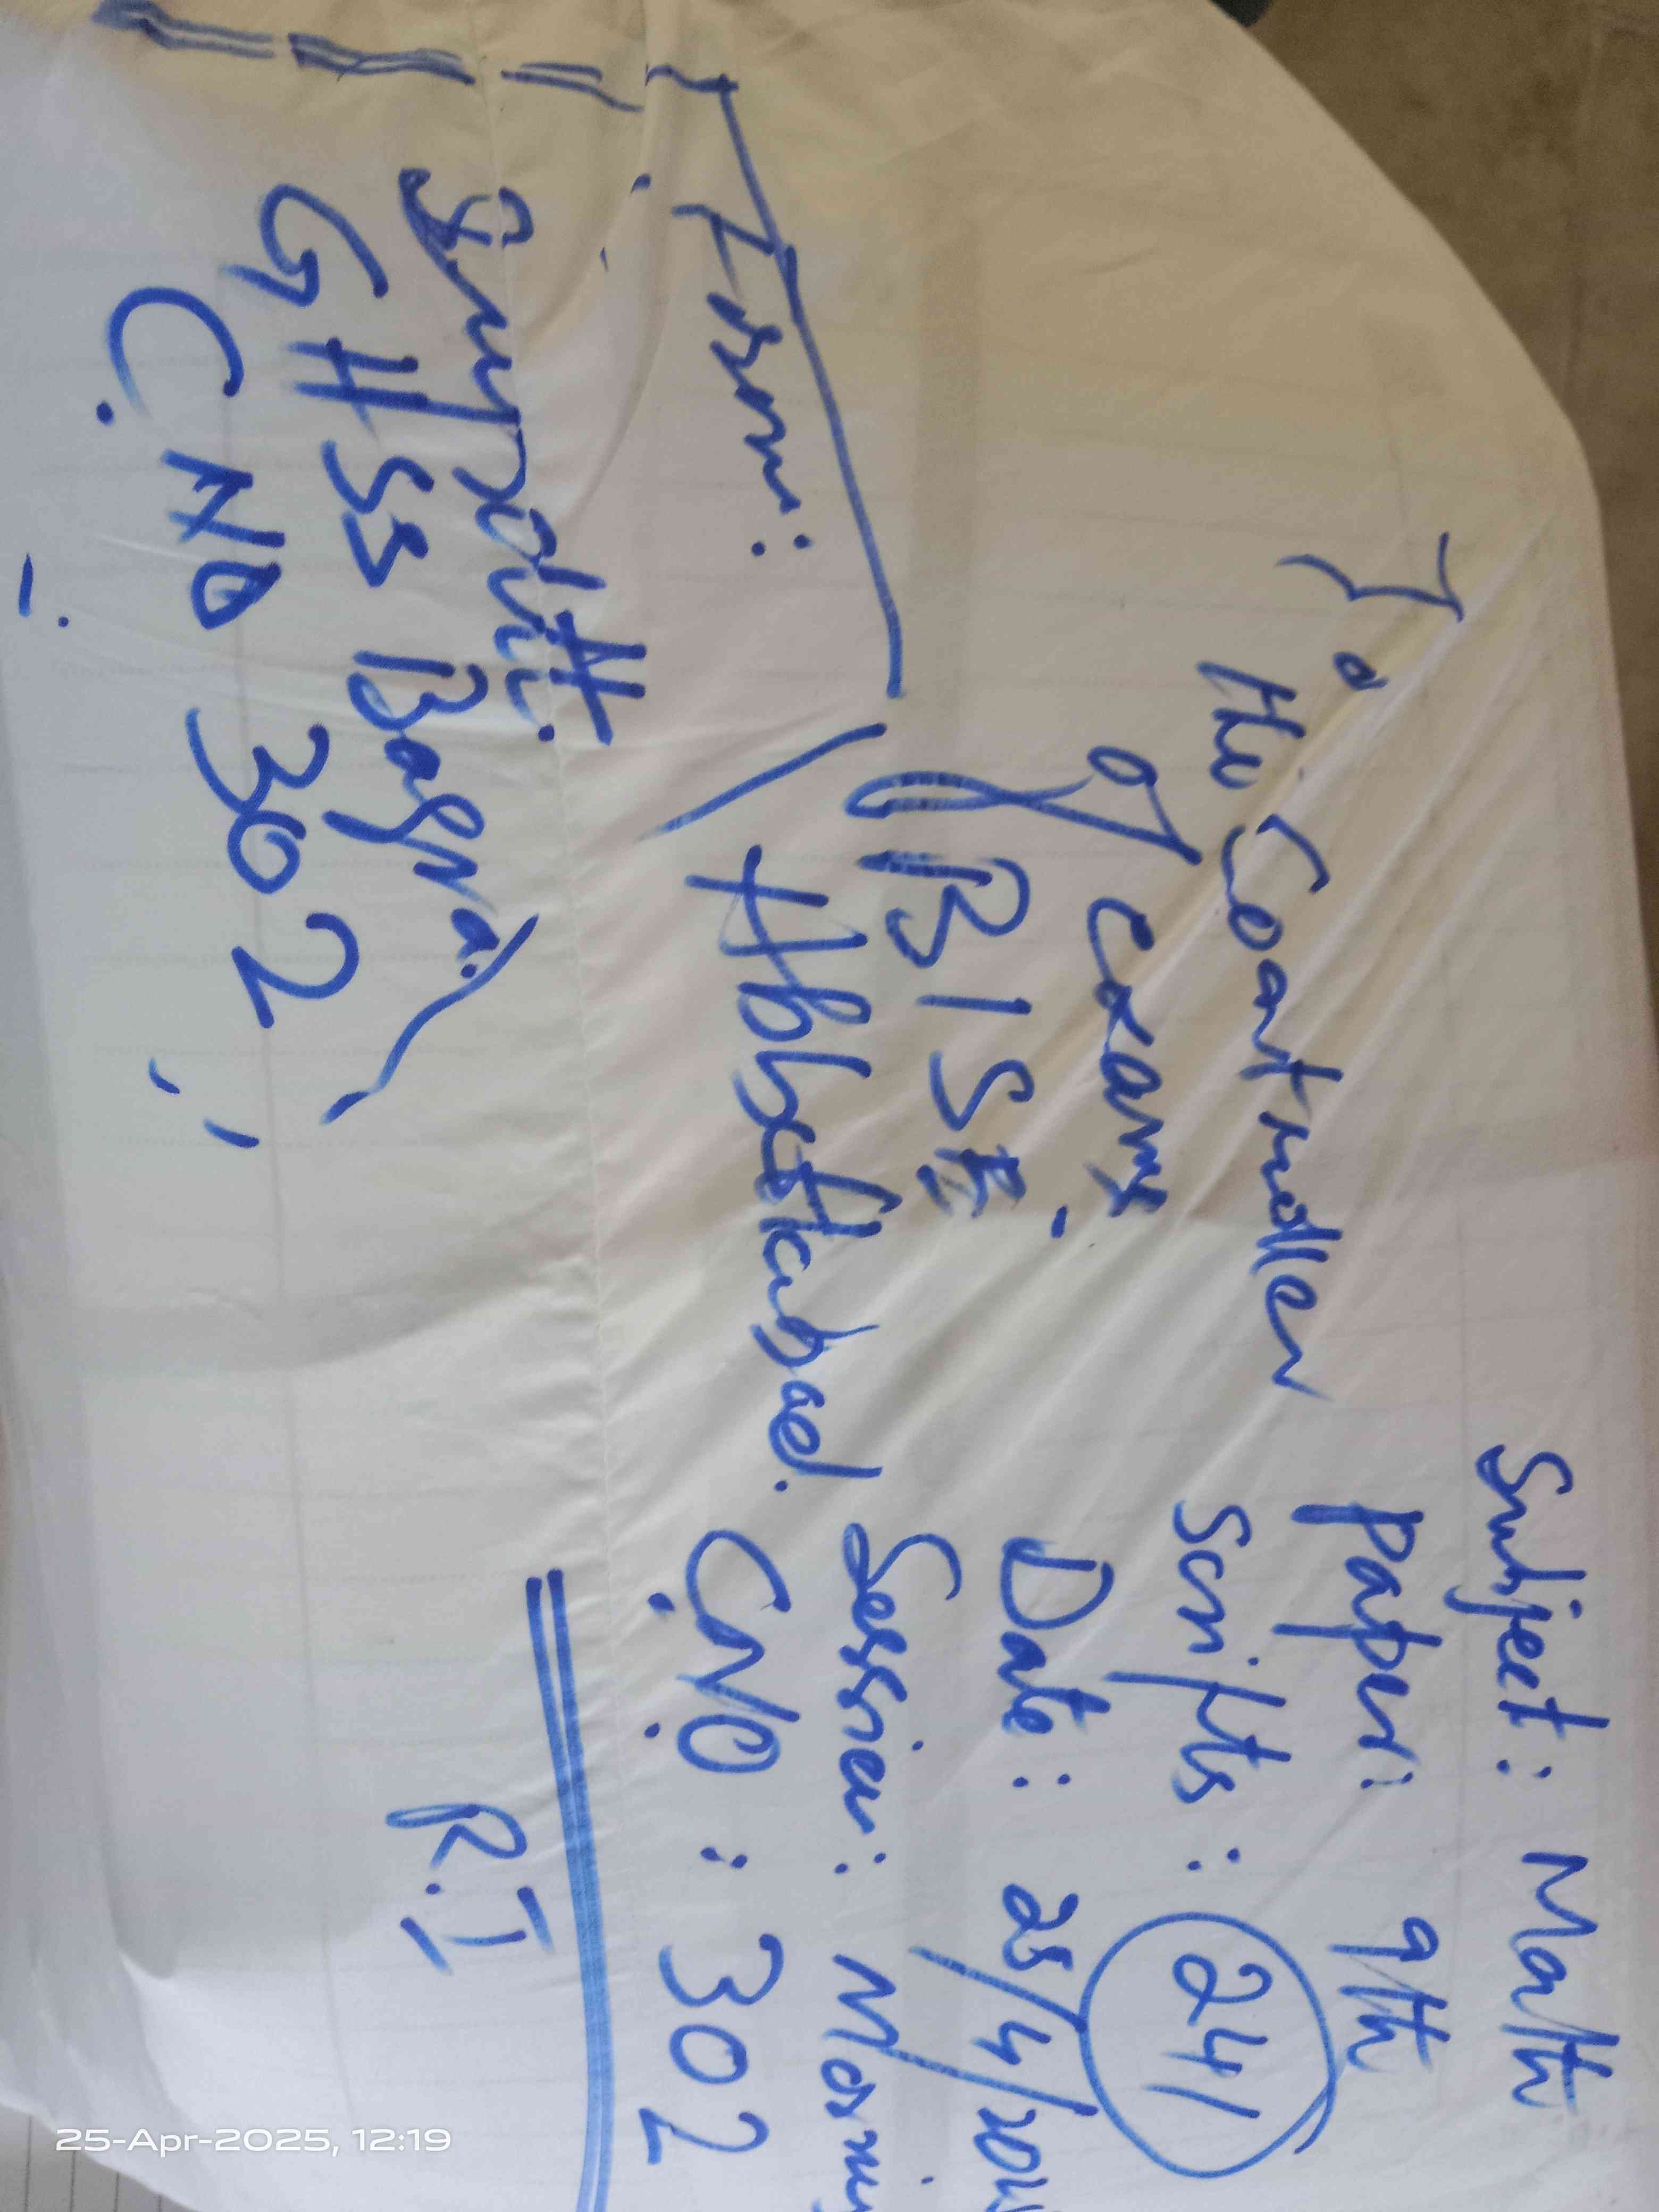 Subject: Math
Paper: 9th
Scripts: 241
Date: 25/4/202
Session: Mornin
C.NO: 302
R.I
To
the Controller
of Exams.
BISE
Abbottabad.
From:
Suptdtt:
GHSS Bagra.
C.NO 302
25-Apr-2025, 12:19